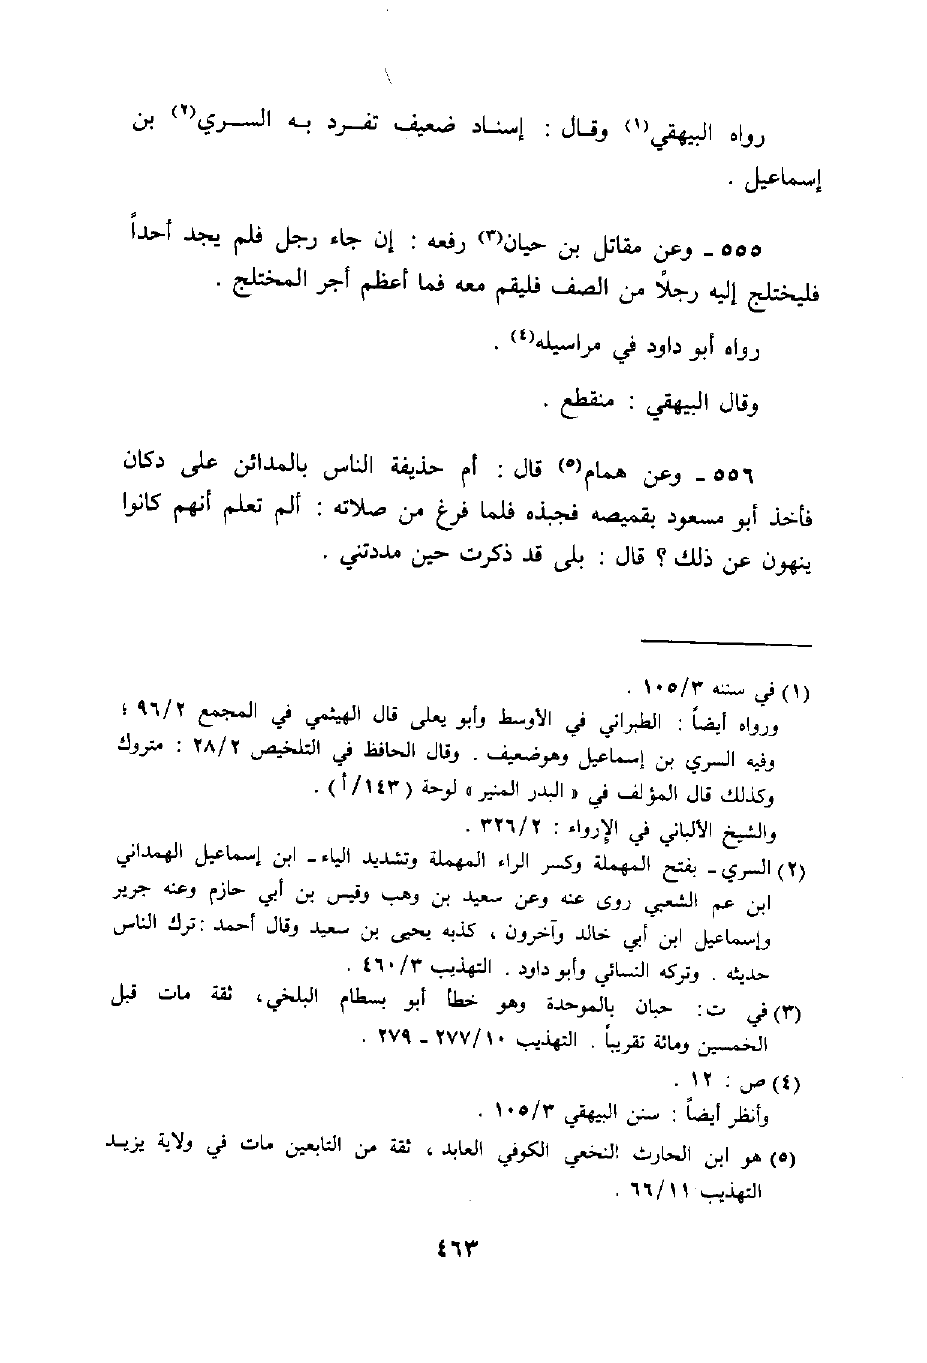 رواه البيهقي(١) وقال : إسناد ضعيف تفرد به السري(٢) بن
إسماعيل .
٥٥٥ ـ وعن مقاتل بن حيان(٣) رفعه : إن جاء رجل فلم يجد أحداً
فليختلج إليه رجلاً من الصف فليقم معه فما أعظم أجر المختلج .
رواه أبو داود في مراسيله(٤) .
وقال البيهقي : منقطع .
٥٥٦ ـ وعن همام(٥) قال : أم حذيفة الناس بالمدائن على دكان
فأخذ أبو مسعود بقميصه فجبذه فلما فرغ من صلاته : ألم تعلم أنهم كانوا
ينهون عن ذلك ؟ قال : بلى قد ذكرت حين مددتني .
(١) في سننه ١٠٥/٣ .
ورواه أيضاً : الطبراني في الأوسط وأبو يعلى قال الهيثمي في المجمع ٩٦/٢ ؛
وفيه السري بن إسماعيل وهوضعيف . وقال الحافظ في التلخيص ٢٨/٢ : متروك
وكذلك قال المؤلف في « البدر المنير » لوحة ( ١٤٣/أ ) .
والشيخ الألباني في الإرواء : ٣٢٦/٢ .
(٢) السري ـ بفتح المهملة وكسر الراء المهملة وتشديد الياء ـ ابن إسماعيل الهمداني
ابن عم الشعبي روى عنه وعن سعيد بن وهب وقيس بن أبي حازم وعنه جرير
وإسماعيل ابن أبي خالد وآخرون ، كذبه يحيى بن سعيد وقال أحمد : ترك الناس
حديثه . وتركه النسائي وأبو داود . التهذيب ٤٦٠/٣ .
(٣) في ت : حبان بالموحدة وهو خطأ أبو بسطام البلخي ، ثقة مات قبل
الخمسين ومائة تقريباً . التهذيب ٢٧٧/١٠ ـ ٢٧٩ .
(٤) ص : ١٢ .
وأنظر أيضاً : سنن البيهقي ١٠٥/٣ .
(٥) هو ابن الحارث النخعي الكوفي العابد ، ثقة من التابعين مات في ولاية يزيد
التهذيب ٦٦/١١ .
٤٦٣